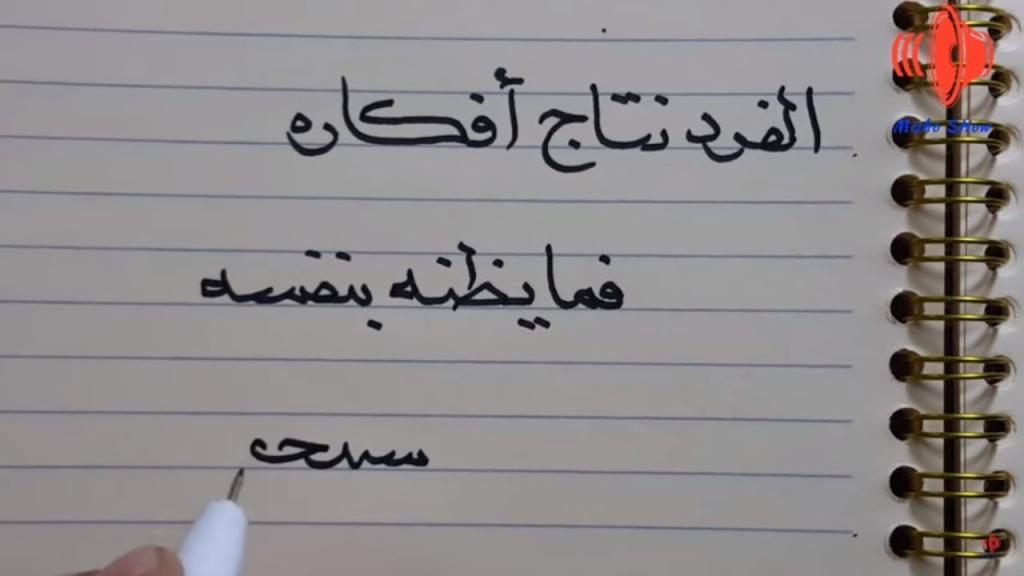 الفرد نتاج أفكاره
فما يظنه بنفسه
Medo Show